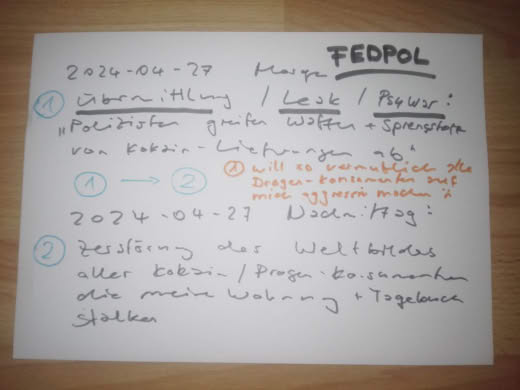 FEDPOL
2024-04-27 Morgen
① Übermittlung / Leak / PsyWar:
"Polizisten greifen Waffen + Sprengstoff
von Kokain-Lieferungen ab"
① → ②
② will so vermutlich alle
Drogen-Konsumenten auf
mich aggressiv machen
2024-04-27 Nachmittag:
② Zerstörung des Weltbildes
aller Kokain/Drogen-Konsumenten
die meine Wohnung + Tagebuch
stalken